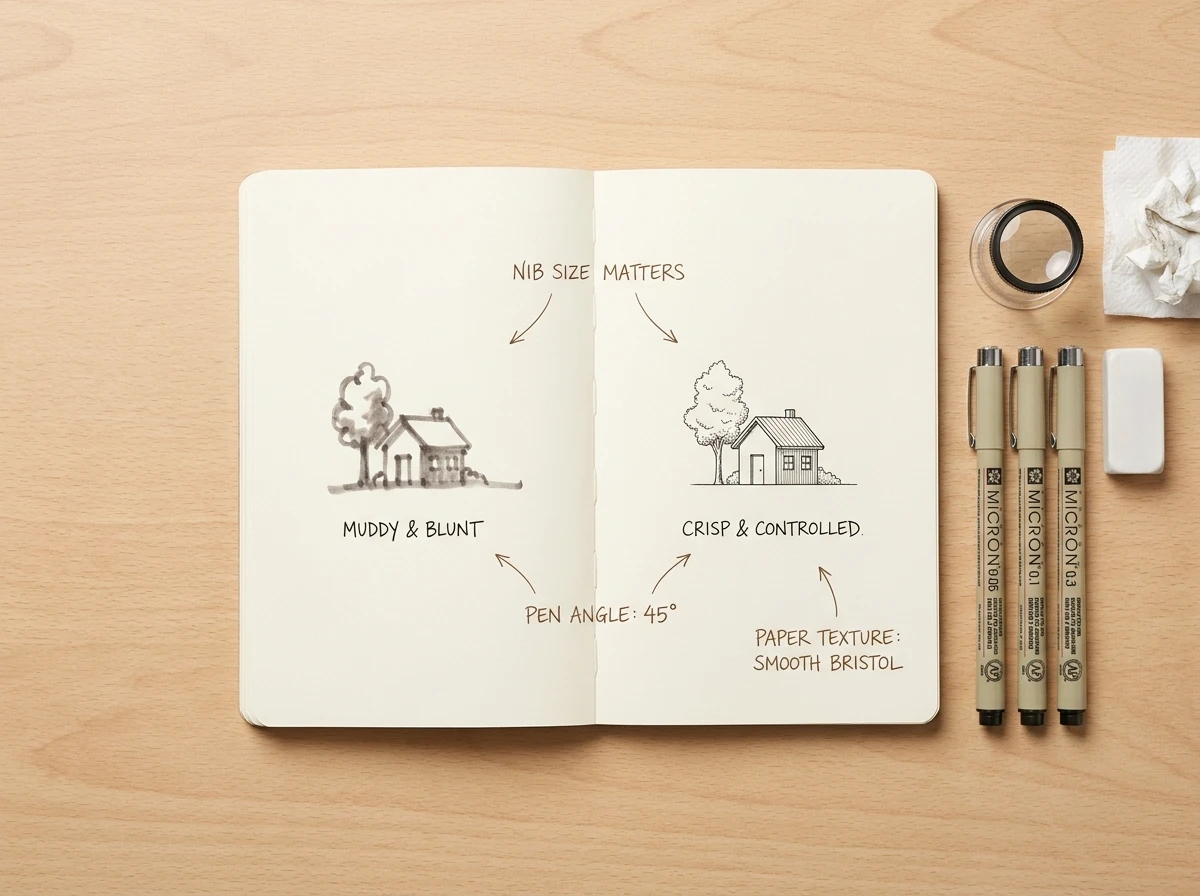 NIB SIZE MATTERS
MUDDY & BLUNT
CRISP & CONTROLLED.
PEN ANGLE: 45°
PAPER TEXTURE:
SMOOTH BRISTOL
MICRON 005
MICRON 0.1
MICRON 0.3
AP
AP
AP